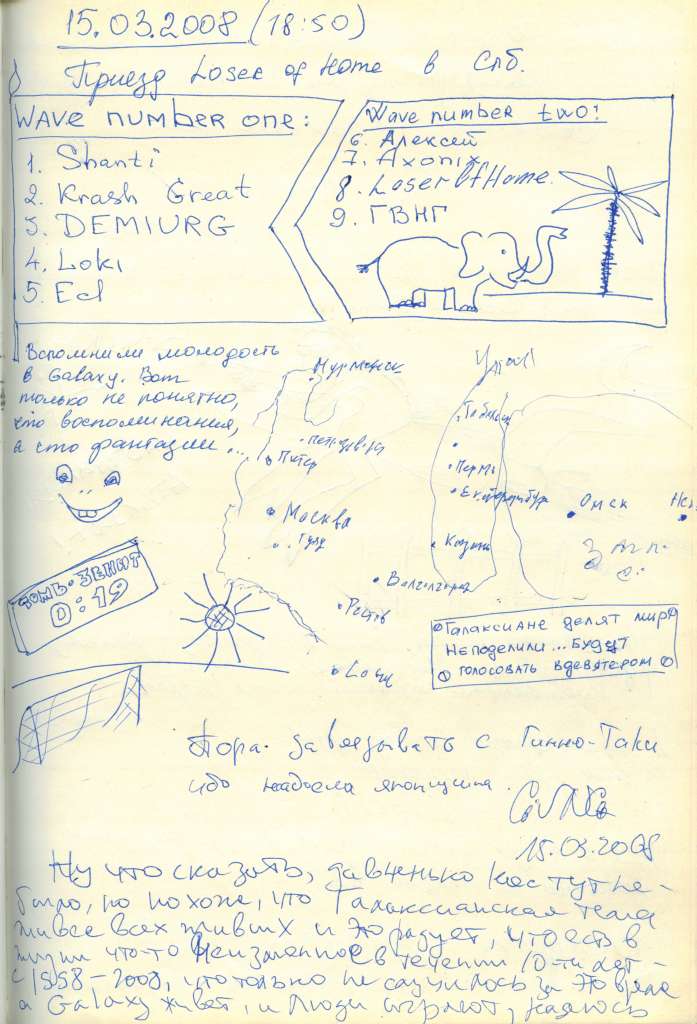 15.03.2008 (18:50)
Приезд Loser of Home в Спб.
Wave number one:
1. Shanti
2. Krash Great
3. DEMIURG
4. Loki
5. Ecl
Wave number two:
6. Алексей
7. Axonix
8. LoserOfHome.
9. ГВНГ
Вспомнили молодость
в Galaxy. Вот
только не понятно,
это воспоминания,
а это фантазии...
Мурманск
Питер
Москва
Тула
Волгоград
Ростов
Урал
Пермь
Екатеринбург
Казань
Омск
ТОМЬ-ЗЕНИТ
0:19
Галаксиане делят мир
Неподелили... Будут
голосовать вдевятером
Пора завязывать с Гинно-Таки
ибо надоела японщина.
15.03.2008
Ну что сказать, давненько нас тут не-
было, но похоже, что Галаксианская тема
живее всех живых и это радует, что есть в
жизни что-то неизменное в течении 10-ти лет -
с 1998 - 2008, что только не случилось за это время
а Galaxy живёт, и люди играют, надеюсь